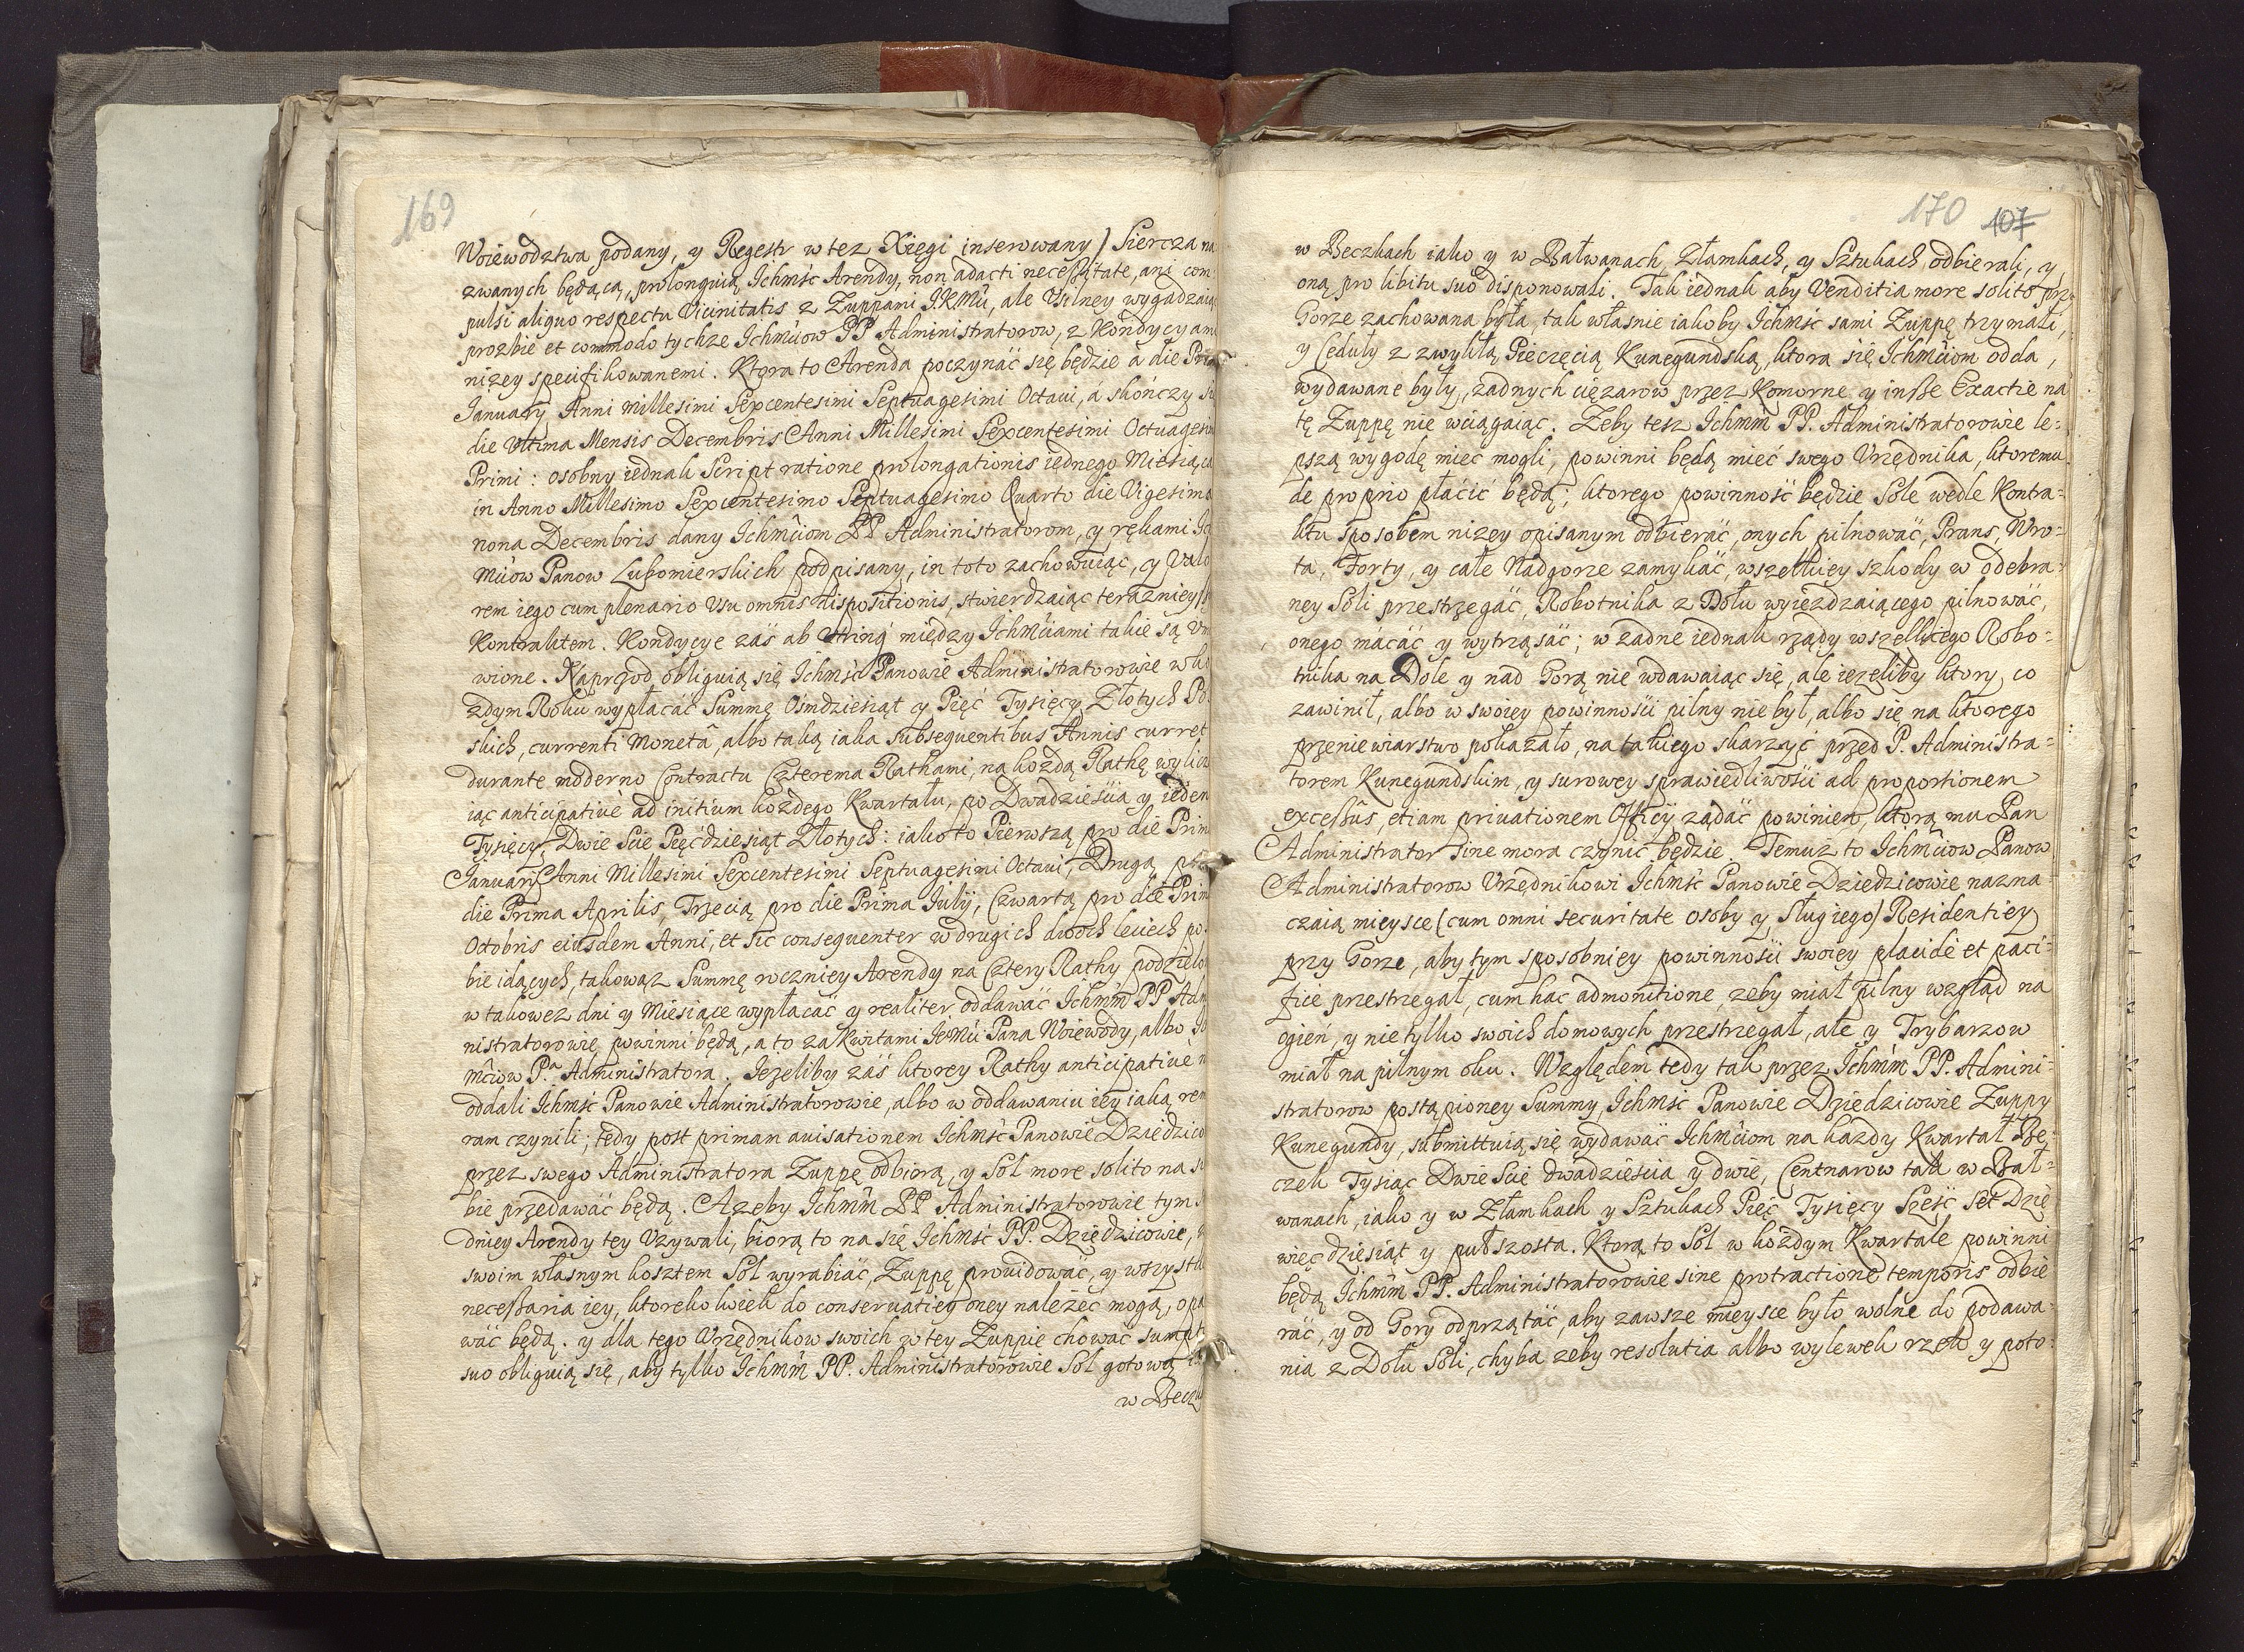 169
Woiewodztwa podany, y Regestr w tez Xięgi inserowany) Siercza na
zwanych będącą, prolonguią Ichmść Arendy, non adacti necessitate, ani com
pulsi aliquo respectu Vicinitatis z Zuppami J.K.Mci, ale Usilney wygadzaiąc
prozbie et commodo tychze Ichmciow PP Administratorow, z Kondycyami
nizey specifikowanemi. Ktora to Arenda poczynać się będzie a die Prima
January Anni Millesimi Sexcentesimi Septuagesimi Octaui, á skończy się
die Vltima Mensis Decembris Anni Millesimi Sexcentesimi Octuagesimi
Primi: osobny iednak Script ratione prolongationis iednego Miesiąca
in Anno Millesimo Sexcentesimo Septuagesimo Quarto die Vigesima
nona Decembris dany Ichmciom PP Administratorom, y rękami Ich
Mciow Panow Lubomierskich podpisany, in toto zachowuiąc, y Valo
rem iego cum plenario Vsu omnis dispositionis, stwierdzaiąc teraznieyszym
Kontraktem. Kondycye zaś ab Utrinq między Ichmciami takie są Vmo
wione. Naprzod obliguią się Ichmść Panowie Administratorowie w ko
zdym Roku wypłacać Summę Ośmdziesiąt y Pięć Tysięcy Złotych Pol
skich, currenti Monetâ, albo taką iaka subsequentibus Annis curret
durante moderno Contractu Czterema Rathami, na kozdą Rathę wylicza
iąc anticipatiuè ad initium kozdego Kwartału, po Dwadziescia y ieden
Tysięcy Dwie Scie Pięćdziesiąt Złotych: iako to Pierwszą pro die Prima
January Anni Millesimi Sexcentesimi Septuagesimi Octaui, Drugą pro
die Prima Aprilis, Trzecią pro die Prima July, Czwartą pro die Prima
Octobris eiusdem Anni, et sic consequenter w drugich dwoch leciech po so
bie idących, takowąz Summę roczniey Arendy na Cztery Rathy podzielo
w takowez dni y Miesiące wypłacać y realiter oddawać Ichmm PP Admi
nistratorowie, powinni będą, a to za Kwitami Je Mci Pana Woiewody, albo Ich
Mciow P.a Administratora. Jezeliby zaś ktorey Rathy anticipatiuè nie
oddali Ichmść Panowie Administratorowie, albo w oddawaniu iey iaką remo
ram czynili; tedy post primam auisationem Ichmść Panowie Dziedzico
przez swego Administratora Zuppę odbiorą, y Sol more solito na sie
bie przedawać będą. A zeby Ichmm PP Administratorowie tym s
dniey Arendy tey Vzywali, biorą to na się Ichmść PP. Dziedzicowie,
swoim własnym kosztem Sol wyrabiać, Zuppę prouidować, y wszystkie
necessaria iey, ktorekolwiek do conseruatiey oney nalezeć mogą, opa
wać będą. y dla tego Vrzędnikow swoich w tey Zuppie chować sumptu
suo obliguią się, aby tylko Ichmm PP. Administratorowie Sol gotową
w Beczk
170 107
w Beczkach iako y w Bałwanach, Złamkach, y Sztukach odbierali, y
oną pro libitu suo disponowali. Tak iednak aby Venditia more solito przy
Gorze zachowana była, tak własnie iakoby Ichmść sami Zuppę trzymali,
y Ceduły z zwykłą Pieczęcią Kunegundską, ktora się Ichmciom odda,
wydawane były, zadnych cięzarow przez Komorne y insze Exactie na
tę Zuppę nie wciągaiąc. Zeby tesz Ichmm PP. Administratorowie le-
pszą wygodę mieć mogli, powinni będą mieć swego Vrzędnika, ktoremu
de proprio płacić będą; ktorego powinność będzie Sole wedle Kontra-
ktu sposobem nizey opisanym odbierać, onych pilnować, Prans, Wro-
ta, Forty, y całe Nadgorze zamykać, wszelkiey szkody w odebra-
ney Soli przestrzegać, Robotnika z Dołu wyiezdzaiącego pilnować,
onego macać y wytrząsać; w zadne iednak rządy wszelkiego Robo-
tnika na Dole y nad Gorą nie wdawaiąc się, ale iezeliby ktory co
zawinił, albo w swoiey powinności pilny nie był, albo się na ktorego
przeniewiarstwo pokazało, na takiego skarzyć przed P. Administra-
torem Kunegundskim, y surowey sprawiedliwości ad proportionem
excessûs, etiam priuationem Officij ządać powinien, ktorą mu Pan
Administrator sine mora czynić będzie. Temuz to Ichmciow Panow
Administratorow Vrzędnikowi Ichmść Panowie Dziedzicowie nazna
czaią mieysce (cum omni securitate osoby y Sług iego) Residentiey
przy Gorze, aby tym sposobniey powinności swoiey placidè et paci-
ficè przestrzegał, cum hac admonitione, zeby miał pilny wzgląd na
ogień, y nie tylko swoich domowych przestrzegał, ale y Trybarzow
miał na pilnym oku. Względem tedy tak przez Ichmm PP. Admini-
stratorow postąpioney Summy, Ichmść Panowie Dziedzicowie Zuppy
Kunegundy, submittuią się wydawać Ichmciom na kazdy Kwartał Be-
czek Tysiąc Dwie Scie dwadziescia y dwie, Centnarow tak w Bał-
wanach, iako y w Złamkach y Sztukach Pięć Tysięcy Szesć Set Dzie
więćdziesiąt y pułszosta. Ktorą to Sol w kozdym Kwartale powinni
będą Ichmm PP. Administratorowie sine protractione temporis odbie
rać, y od Gory odprzątać, aby zawsze mieysce było wolne do podawa-
nia z Dołu Soli, chyba zeby resolutia albo wylewek rzek y poto-